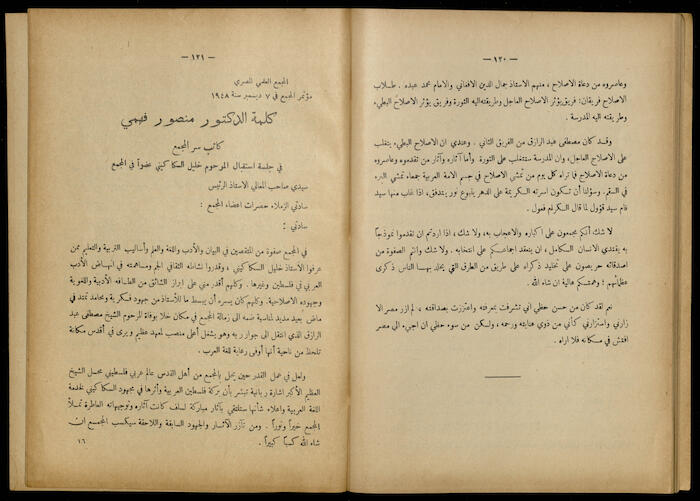 — ١٢٠ —
وعاصروه من دعاة الاصلاح، منهم الاستاذ جمال الدين الافغاني والامام محمد عبده . طلاب
الاصلاح فريقان : فريق يؤثر الاصلاح العاجل وطريقته اليه الثورة وفريق يؤثر الاصلاح البطيء
وطريقته اليه المدرسة .
وقد كان مصطفى عبد الرازق من الفريق الثاني . وعندي ان الاصلاح البطيء يتغلب
على الاصلاح العاجل، وان المدرسة ستتغلب على الثورة . وأما آثاره وآثار من تقدموه وعاصروه
من دعاة الاصلاح فما تراه كل يوم من تمشي الاصلاح في جسم الامة العربية جمعاء تمشي البرء
في السقم. وسؤلنا أن تكون اسرته الكريمة على الدهر ينبوع نور يتدفق، اذا غاب منها سيد
قام سيد قؤول لما قال الكرام فعول .
لا شك أنكم مجمعون على اكباره والاعجاب به، ولا شك، اذا اردتم ان تقدموا نموذجاً
به يقتدي الانسان الكامل، ان ينعقد اجماعكم على انتخابه . ولا شك وانتم الصفوة من
اصدقائه حريصون على تخليد ذكراه على طريق من الطرق التي يخلد بها الناس ذكرى
عظمائهم ؛ وهمتكم عالية ان شاء الله .
نعم لقد كان من حسن حظي اني تشرفت بمعرفته واعتززت بصداقته ، لم ازر مصر الا
زارني واستزارني كأني من ذوي عنايته ورحمه، ولكن من سوء حظي ان اجيء الى مصر
افتش في مكانه فلا اراه .
— ١٢١ —
المجمع العلمي المصري
مؤتمر المجمع في ٧ ديسمبر سنة ١٩٤٨
كلمة الدكتور منصور فهمي
كاتب سر المجمع
في جلسة استقبال المرحوم خليل السكاكيني عضواً في المجمع
سيدي صاحب المعالي الاستاذ الرئيس
سادتي الزملاء حضرات اعضاء المجمع :
سادتي :
في المجمع صفوة من المتقصين في البيان والأدب واللغة والعلم وأساليب التربية والتعليم ممن
عرفوا الاستاذ خليل السكاكيني ، وقدروا نشاطه الثقافي الجم ومساهمته في انهاض الأدب
العربي في فلسطين وغيرها . وكلهم أقدر مني على ابراز الشائق من الطافه الأدبية واللغوية
وجهوده الاصلاحية. وكلهم كان يسره أن يبسط ما للأستاذ من جهود فكرية ومحامد تمتد في
ماض بعيد مديد لمناسبة ضمه الى زمالة المجمع في مكان خلا بوفاة المرحوم الشيخ مصطفى عبد
الرازق الذي انتقل الى جوار ربه وهو يشغل أعلى منصب لمعهد عظيم ويرى في أقدس مكانة
تلحظ من ناحية أنها أوفى رعاية للغة العرب .
ولعل في عمل القدر حين يحل بالمجمع من أهل القدس عالم عربي فلسطيني محل الشيخ
العظيم الأكبر اشارة ربانية تبشر بأن بركة فلسطين العربية وأثرها في مجهود السكاكيني لخدمة
اللغة العربية واعلاء شأنها ستلتقي بآثار مباركة لسلف كانت آثاره وتوجيهاته العاطرة تملأ
المجمع خيراً ونوراً . ومن تآزر الآثار والجهود السابقة واللاحقة سيكسب المجمع ان
شاء الله كسباً كبيراً .
١٦